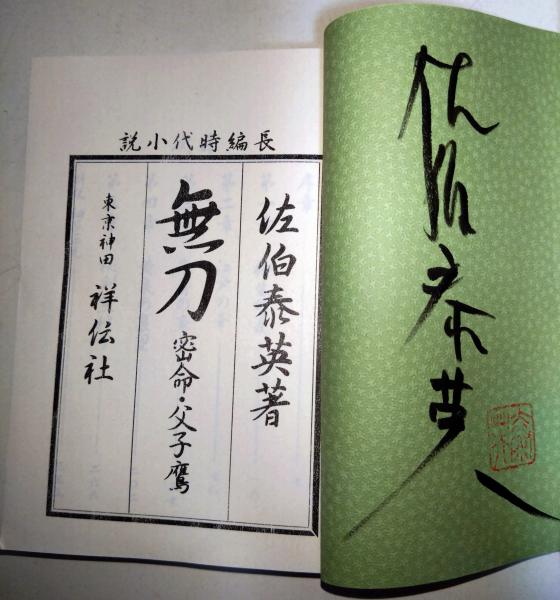 説小代時編長
佐伯泰英著
無刀
密命・父子鷹
東京神田 祥伝社
佐伯泰英